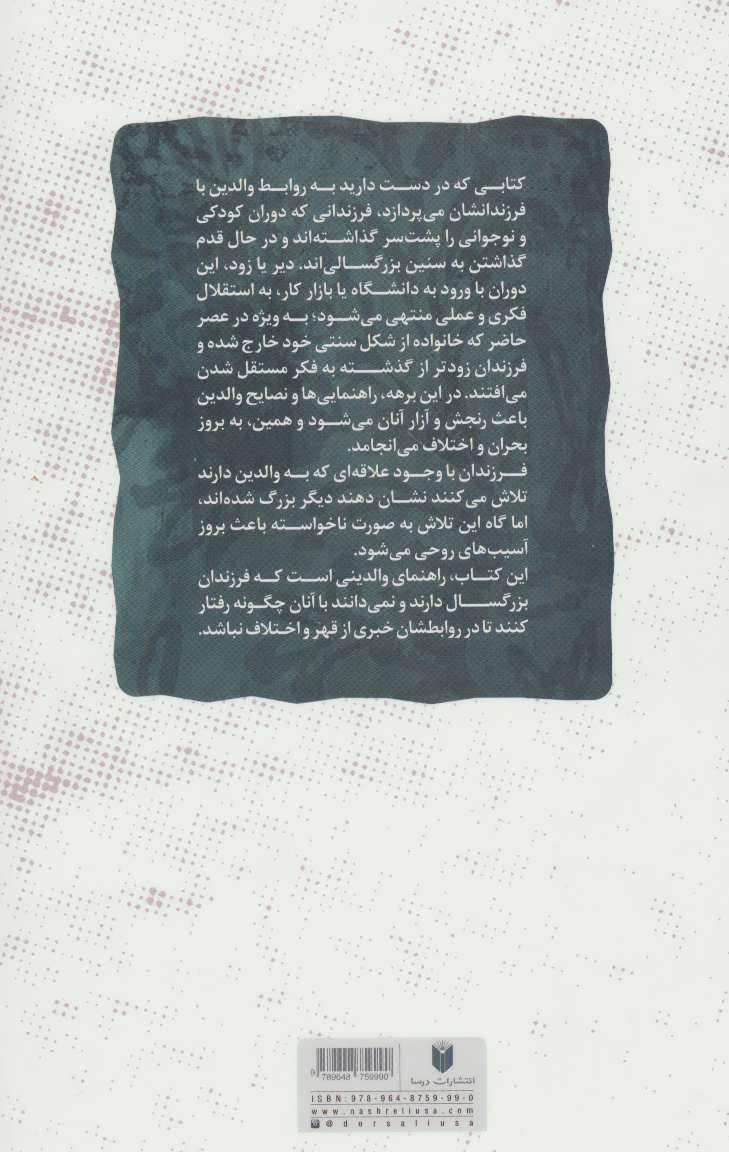 کتابی که در دست دارید به روابط والدین با
فرزندانشان می‌پردازد، فرزندانی که دوران کودکی
و نوجوانی را پشت‌سر گذاشته‌اند و در حال قدم
گذاشتن به سنین بزرگسالی‌اند. دیر یا زود، این
دوران با ورود به دانشگاه یا بازار کار، به استقلال
فکری و عملی منتهی می‌شود؛ به ویژه در عصر
حاضر که خانواده از شکل سنتی خود خارج شده و
فرزندان زودتر از گذشته به فکر مستقل شدن
می‌افتند. در این برهه، راهنمایی‌ها و نصایح والدین
باعث رنجش و آزار آنان می‌شود و همین، به بروز
بحران و اختلاف می‌انجامد.
فرزندان با وجود علاقه‌ای که به والدین دارند
تلاش می‌کنند نشان دهند دیگر بزرگ شده‌اند،
اما گاه این تلاش به صورت ناخواسته باعث بروز
آسیب‌های روحی می‌شود.
این کتاب، راهنمای والدینی است که فرزندان
بزرگسال دارند و نمی‌دانند با آنان چگونه رفتار
کنند تا در روابطشان خبری از قهر و اختلاف نباشد.
انتشارات درسا
9 789648 759990
ISBN: 978-964-8759-99-0
www.nashreliusa.com
@dorsaliusa